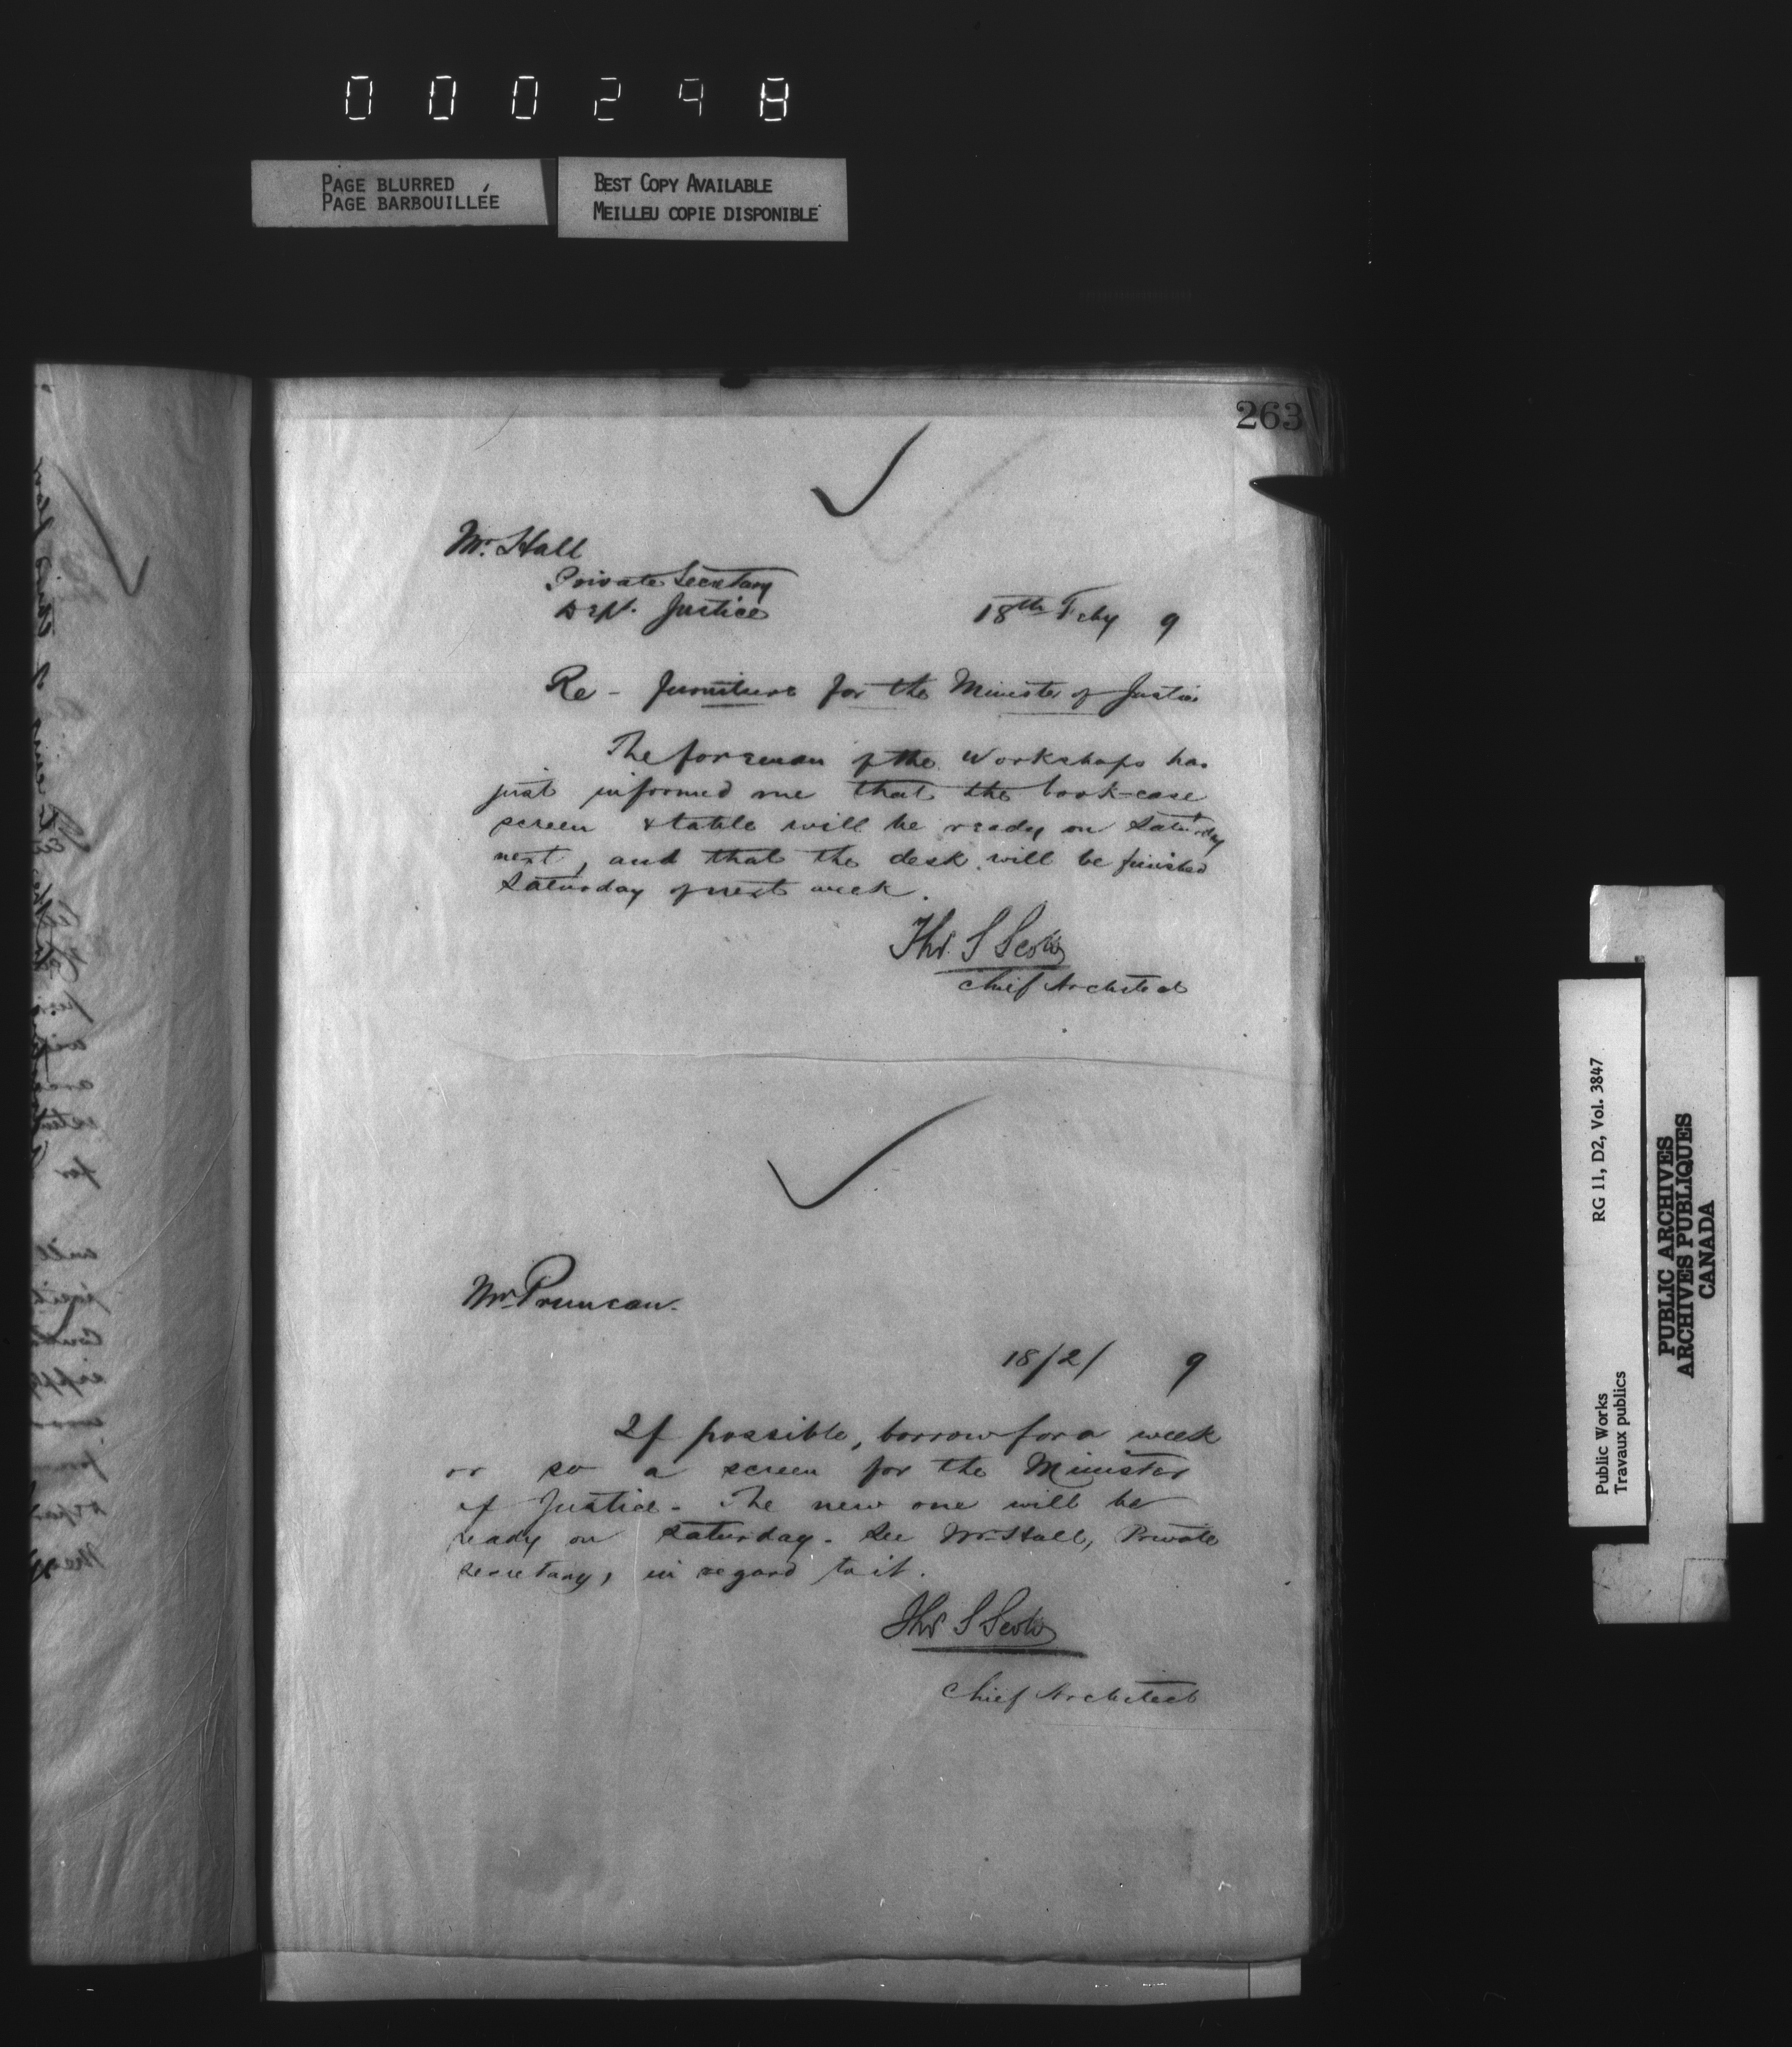 000298
PAGE BLURRED
PAGE BARBOUILLÉE
BEST COPY AVAILABLE
MEILLEU COPIE DISPONIBLE
263
Mr. Hall
Private Secretary
Dept. Justice
18th Feby 9
Re - furniture for the Minister of Justice
The foreman of the Workshops has
just informed me that the book-case
screen & table will be ready on Saturday
next, and that the desk will be finished
Saturday of next week.
Thos. S Scott
Chief Architect
Mr.
18/2/ 9
If possible, borrow for a week
or so a screen for the Minister
of Justice - The new one will be
ready on Saturday. See Mr Hall, Private
secretary, in regard to it.
Thos S Scott
Chief Architect
RG 11, D2, Vol. 3847
Public Works
Travaux publics
PUBLIC ARCHIVES
ARCHIVES PUBLIQUES
CANADA